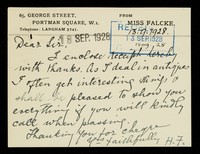 65, GEORGE STREET,
PORTMAN SQUARE, W.1.
Telephone: LANGHAM 2741.
FROM
MISS FALCKE,
13.9.1928.
13 SEP 1928
SEP. 1928
Dear Sir,
I enclose receipt
with thanks. As I deal in antiques
I often get interesting things, I
shall be pleased to show you
everything if you will kindly
call when passing.
Thanking you for cheque
Yrs faithfully H.F.